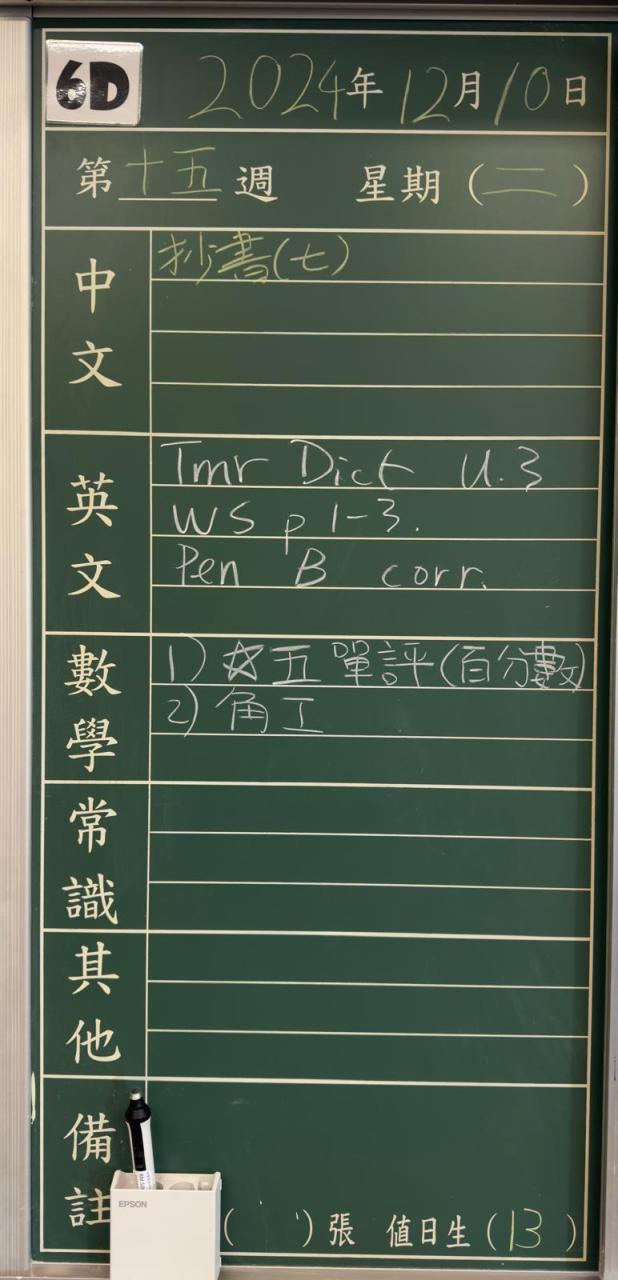 6D 2024年12月10日
第十五週 星期(二)
中文
抄書(七)
英文
Tmr Dict U.3
WS p 1-3.
Pen B corr.
數學
1) ☆五 單評(百分數)
2) 角工
常識
其他
備註
EPSON
( )張 值日生(13)